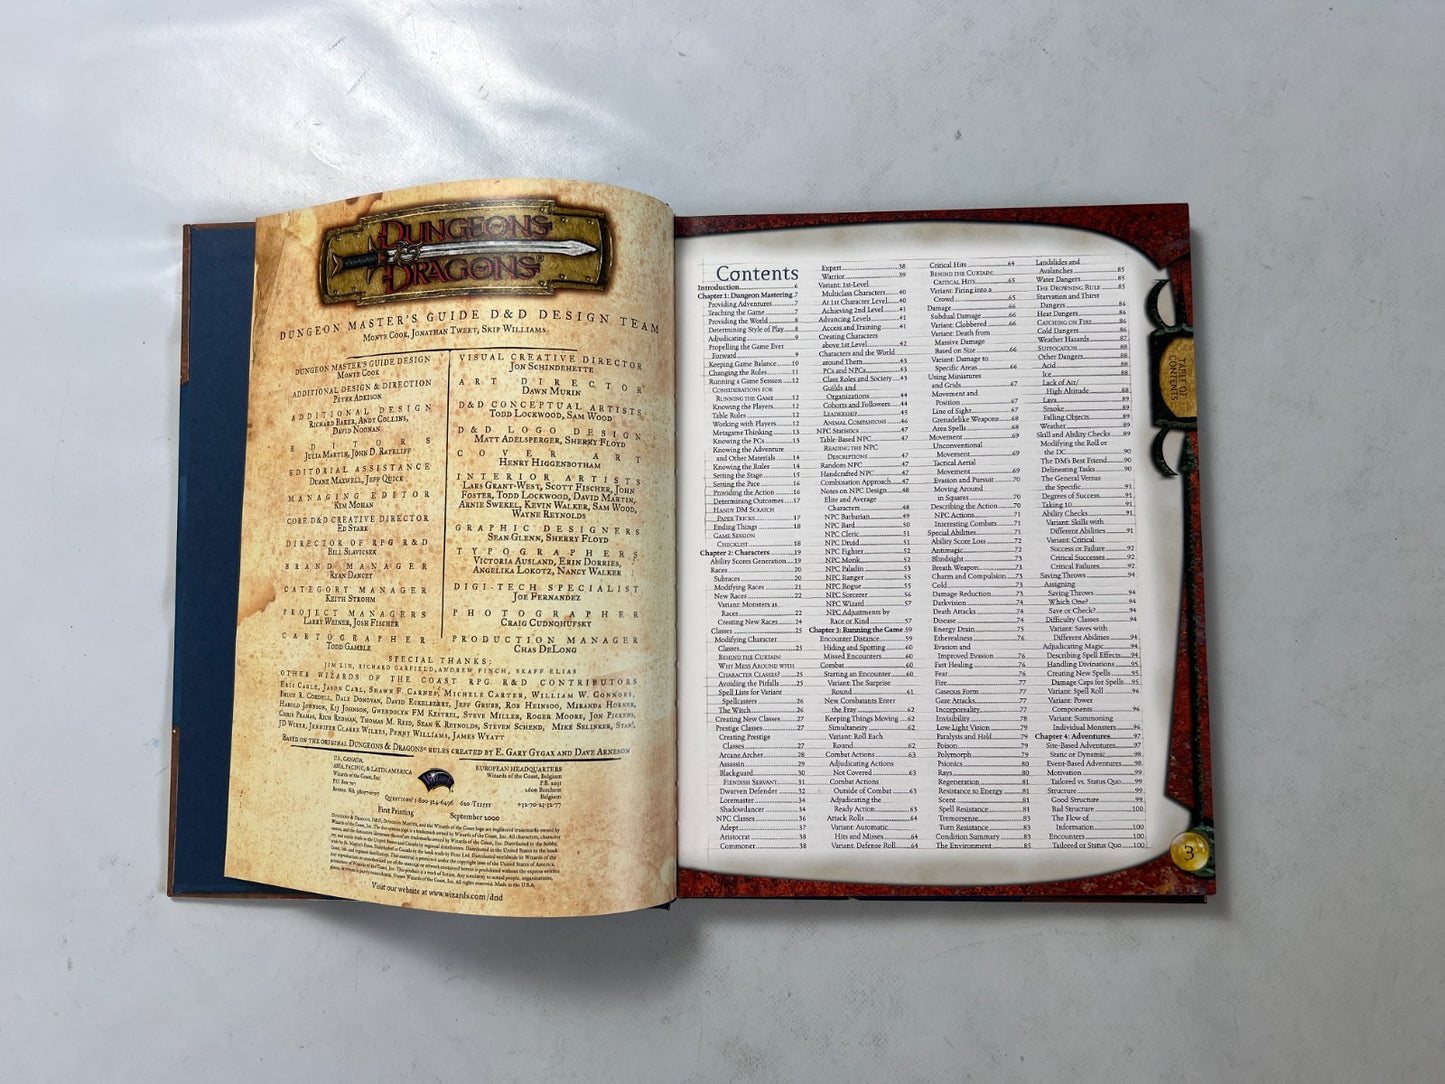 DUNGEONS
& DRAGONS®
DUNGEON MASTER'S GUIDE D&D DESIGN TEAM
MONTE COOK, JONATHAN TWEET, SKIP WILLIAMS
DUNGEON MASTER'S GUIDE DESIGN
MONTE COOK
ADDITIONAL DESIGN & DIRECTION
PETER ADKISON
ADDITIONAL DESIGN
RICHARD BAKER, ANDY COLLINS,
DAVID NOONAN
EDITORS
JULIA MARTIN, JOHN D. RATELIFF
EDITORIAL ASSISTANCE
DUANE MAXWELL, JEFF QUICK
MANAGING EDITOR
KIM MOHAN
CORE D&D CREATIVE DIRECTOR
ED STARK
DIRECTOR OF RPG R&D
BILL SLAVICSEK
BRAND MANAGER
RYAN DANCEY
CATEGORY MANAGER
KEITH STROHM
PROJECT MANAGERS
LARRY WEINER, JOSH FISCHER
CARTOGRAPHER
TODD GAMBLE
VISUAL CREATIVE DIRECTOR
JON SCHINDEHETTE
ART DIRECTOR
DAWN MURIN
D&D CONCEPTUAL ARTISTS
TODD LOCKWOOD, SAM WOOD
D&D LOGO DESIGN
MATT ADELSPERGER, SHERRY FLOYD
COVER ART
HENRY HIGGENBOTHAM
INTERIOR ARTISTS
LARS GRANT-WEST, SCOTT FISCHER, JOHN
FOSTER, TODD LOCKWOOD, DAVID MARTIN,
ARNIE SWEKEL, KEVIN WALKER, SAM WOOD,
WAYNE REYNOLDS
GRAPHIC DESIGNERS
SEAN GLENN, SHERRY FLOYD
TYPOGRAPHERS
VICTORIA AUSLAND, ERIN DORRIES,
ANGELIKA LOKOTZ, NANCY WALKER
DIGI-TECH SPECIALIST
JOE FERNANDEZ
PHOTOGRAPHER
CRAIG CUDNOHUFSKY
PRODUCTION MANAGER
CHAS DELONG
SPECIAL THANKS:
JIM LIN, RICHARD GARFIELD, ANDREW FINCH, SKAFF ELIAS
OTHER WIZARDS OF THE COAST RPG R&D CONTRIBUTORS
ERIC CAGLE, JASON CARL, SHAWN F. CARNES, MICHELE CARTER, WILLIAM W. CONNORS,
BRUCE R. CORDELL, DALE DONOVAN, DAVID ECKELBERRY, JEFF GRUBB, ROB HEINSOO, MIRANDA HORNER,
HAROLD JOHNSON, KIJ JOHNSON, GWENDOLYN FM KESTREL, STEVE MILLER, ROGER MOORE, JON PICKENS,
CHRIS PRAMAS, RICH REDMAN, THOMAS M. REID, SEAN K REYNOLDS, STEVEN SCHEND, MIKE SELINKER, STAN!,
JD WIKER, JENNIFER CLARKE WILKES, PENNY WILLIAMS, JAMES WYATT
BASED ON THE ORIGINAL DUNGEONS & DRAGONS® RULES CREATED BY E. GARY GYGAX AND DAVE ARNESON
U.S., CANADA,
ASIA, PACIFIC, & LATIN AMERICA
Wizards of the Coast, Inc.
P.O. Box 707
Renton WA 98057-0707
QUESTIONS? 1-800-324-6496
EUROPEAN HEADQUARTERS
Wizards of the Coast, Belgium
P.B. 2031
2600 Berchem
Belgium
+32-70-23-32-77
First Printing
September 2000
620-T11551
Visit our website at www.wizards.com/dnd
Contents
Introduction 6
Chapter 1: Dungeon Mastering 7
Providing Adventures 7
Teaching the Game 7
Providing the World 8
Determining Style of Play 8
Adjudicating 9
Propelling the Game Ever
Forward 9
Keeping Game Balance 10
Changing the Rules 11
Running a Game Session 12
CONSIDERATIONS FOR
RUNNING THE GAME 12
Knowing the Players 12
Table Rules 12
Working with Players 12
Metagame Thinking 13
Knowing the PCs 13
Knowing the Adventure
and Other Materials 14
Knowing the Rules 14
Setting the Stage 15
Setting the Pace 16
Providing the Action 16
Determining Outcomes 17
HANDY DM SCRATCH
PAPER TRICKS 17
Ending Things 18
GAME SESSION
CHECKLIST 18
Chapter 2: Characters 19
Ability Scores Generation 19
Races 20
Subraces 20
Modifying Races 21
New Races 22
Variant: Monsters as
Races 22
Creating New Races 24
Classes 25
Modifying Character
Classes 25
BEHIND THE CURTAIN:
WHY MESS AROUND WITH
CHARACTER CLASSES? 25
Avoiding the Pitfalls 25
Spell Lists for Variant
Spellcasters 26
The Witch 26
Creating New Classes 27
Prestige Classes 27
Creating Prestige
Classes 27
Arcane Archer 28
Assassin 29
Blackguard 30
FIENDISH SERVANT 31
Dwarven Defender 32
Loremaster 34
Shadowdancer 34
NPC Classes 36
Adept 37
Aristocrat 38
Commoner 38
Expert 38
Warrior 39
Variant: 1st-Level
Multiclass Characters 40
At 1st Character Level 40
Achieving 2nd Level 41
Advancing Levels 41
Access and Training 41
Creating Characters
above 1st Level 42
Characters and the World
around Them 43
PCs and NPCs 43
Class Roles and Society 43
Guilds and
Organizations 44
Cohorts and Followers 44
LEADERSHIP 45
ANIMAL COMPANIONS 46
NPC Statistics 47
Table-Based NPC 47
READING THE NPC
DESCRIPTIONS 47
Random NPC 47
Handcrafted NPC 47
Combination Approach 47
Notes on NPC Design 48
Elite and Average
Characters 48
NPC Barbarian 49
NPC Bard 50
NPC Cleric 51
NPC Druid 51
NPC Fighter 52
NPC Monk 52
NPC Paladin 53
NPC Ranger 55
NPC Rogue 55
NPC Sorcerer 56
NPC Wizard 57
NPC Adjustments by
Race or Kind 57
Chapter 3: Running the Game 59
Encounter Distance 59
Hiding and Spotting 60
Missed Encounters 60
Combat 60
Starting an Encounter 60
Variant: The Surprise
Round 61
New Combatants Enter
the Fray 62
Keeping Things Moving 62
Simultaneity 62
Variant: Roll Each
Round 62
Combat Actions 63
Adjudicating Actions
Not Covered 63
Combat Actions
Outside of Combat 63
Adjudicating the
Ready Action 63
Attack Rolls 64
Variant: Automatic
Hits and Misses 64
Variant: Defense Roll 64
Critical Hits 64
BEHIND THE CURTAIN:
CRITICAL HITS 65
Variant: Firing into a
Crowd 65
Damage 66
Subdual Damage 66
Variant: Clobbered 66
Variant: Death from
Massive Damage
Based on Size 66
Variant: Damage to
Specific Areas 66
Using Miniatures
and Grids 67
Movement and
Position 67
Line of Sight 67
Grenadelike Weapons 68
Area Spells 68
Movement 69
Unconventional
Movement 69
Tactical Aerial
Movement 69
Evasion and Pursuit 70
Moving Around
in Squares 70
Describing the Action 70
NPC Actions 71
Interesting Combats 71
Special Abilities 71
Ability Score Loss 72
Antimagic 72
Blindsight 73
Breath Weapon 73
Charm and Compulsion 73
Cold 73
Damage Reduction 73
Darkvision 74
Death Attacks 74
Disease 74
Energy Drain 75
Etherealness 76
Evasion and
Improved Evasion 76
Fast Healing 76
Fear 76
Fire 77
Gaseous Form 77
Gaze Attacks 77
Incorporeality 77
Invisibility 78
Low-Light Vision 79
Paralysis and Hold 79
Poison 79
Polymorph 79
Psionics 80
Rays 80
Regeneration 81
Resistance to Energy 81
Scent 81
Spell Resistance 81
Tremorsense 83
Turn Resistance 83
Condition Summary 83
The Environment 85
Landslides and
Avalanches 85
Water Dangers 85
THE DROWNING RULE 85
Starvation and Thirst
Dangers 86
Heat Dangers 86
CATCHING ON FIRE 86
Cold Dangers 86
Weather Hazards 87
SUFFOCATION 88
Other Dangers 88
Acid 88
Ice 88
Lack of Air/
High Altitude 88
Lava 89
Smoke 89
Falling Objects 89
Weather 89
Skill and Ability Checks 89
Modifying the Roll or
the DC 90
The DM's Best Friend 90
Delineating Tasks 90
The General Versus
the Specific 91
Degrees of Success 91
Taking 10 91
Ability Checks 91
Variant: Skills with
Different Abilities 91
Variant: Critical
Success or Failure 92
Critical Successes 92
Critical Failures 92
Saving Throws 94
Assigning
Saving Throws 94
Which One? 94
Save or Check? 94
Difficulty Classes 94
Variant: Saves with
Different Abilities 94
Adjudicating Magic 94
Describing Spell Effects 94
Handling Divinations 95
Creating New Spells 95
Damage Caps for Spells 95
Variant: Spell Roll 96
Variant: Power
Components 96
Variant: Summoning
Individual Monsters 96
Chapter 4: Adventures 97
Site-Based Adventures 97
Static or Dynamic 98
Event-Based Adventures 98
Motivation 99
Tailored vs. Status Quo 99
Structure 99
Good Structure 99
Bad Structure 100
The Flow of
Information 100
Encounters 100
Tailored or Status Quo 100
TABLE OF
CONTENTS
3